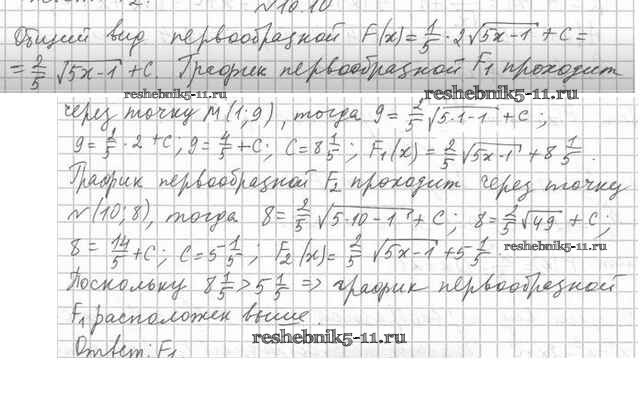 №10.10
Общий вид первообразной F(x) = 1/5 · 2√(5x-1) + C =
= 2/5 √(5x-1) + C. График первообразной F₁ проходит
reshebnik5-11.ru reshebnik5-11.ru
через точку M(1;9), тогда 9 = 2/5 √(5·1-1) + C;
9 = 2/5 · 2 + C; 9 = 4/5 + C; C = 8 1/5; F₁(x) = 2/5 √(5x-1) + 8 1/5.
График первообразной F₂ проходит через точку
N(10;8), тогда 8 = 2/5 √(5·10-1) + C; 8 = 2/5 √49 + C;
8 = 14/5 + C; C = 5 1/5; F₂(x) = 2/5 √(5x-1) + 5 1/5.
reshebnik5-11.ru
Поскольку 8 1/5 > 5 1/5 => график первообразной
F₁ расположен выше
reshebnik5-11.ru
Ответ: F₁